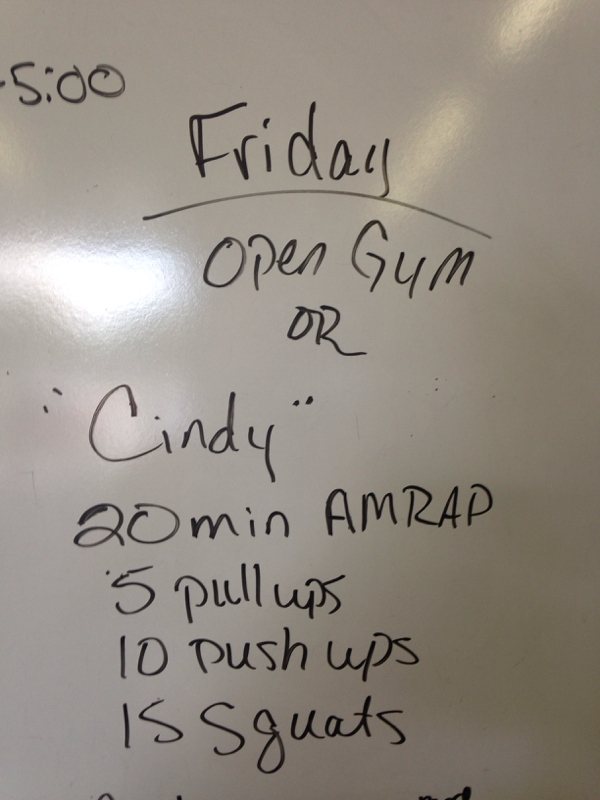 -5:00
Friday
Open Gym
OR
"Cindy"
20 min AMRAP
5 pull ups
10 push ups
15 Squats